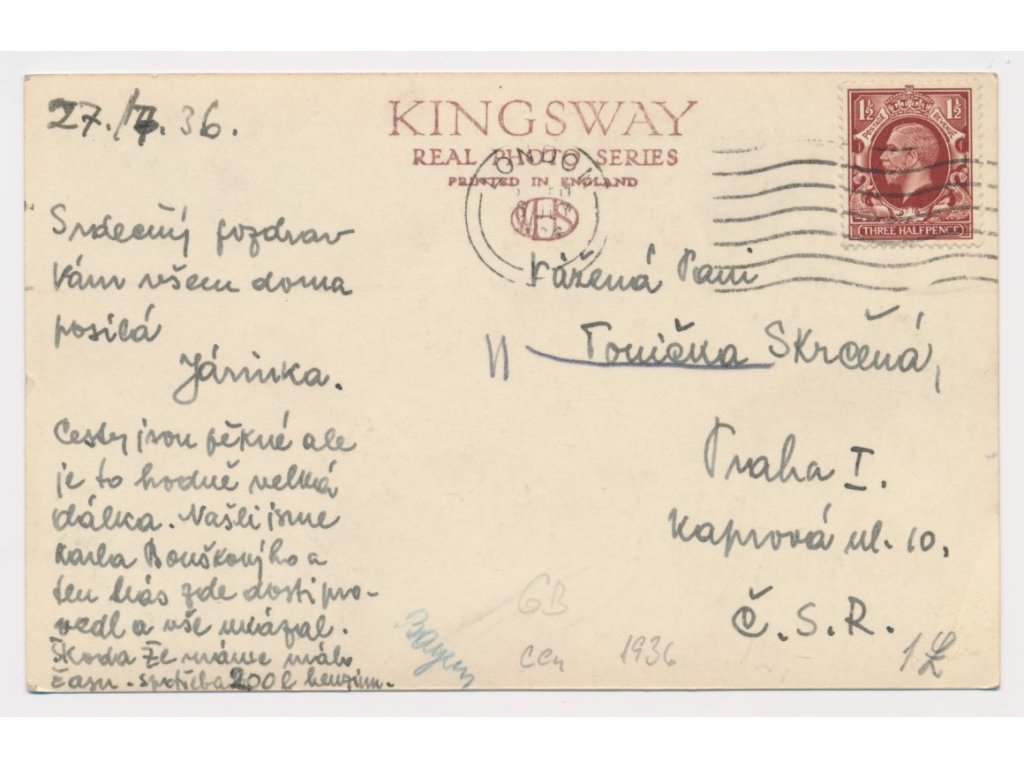 27./7.36.
KINGSWAY
REAL PHOTO SERIES
PRINTED IN ENGLAND
LONDON
1½ 1½
POSTAGE REVENUE
THREE HALFPENCE
Srdečný pozdrav
Vám všem doma
posílá
Járinka.
Cesty jsou pěkné ale
je to hodně velká
dálka. Našli jsme
Karla Bouškovýho a
ten nás zde dosti pro-
vedl a vše ukázal.
Škoda že máme málo
času. spotřeba 200 l benzinu.
Vážená Paní
Tonička Skrčená,
Praha I.
Kaprová ul. 10.
Č.S.R.
GB
1936